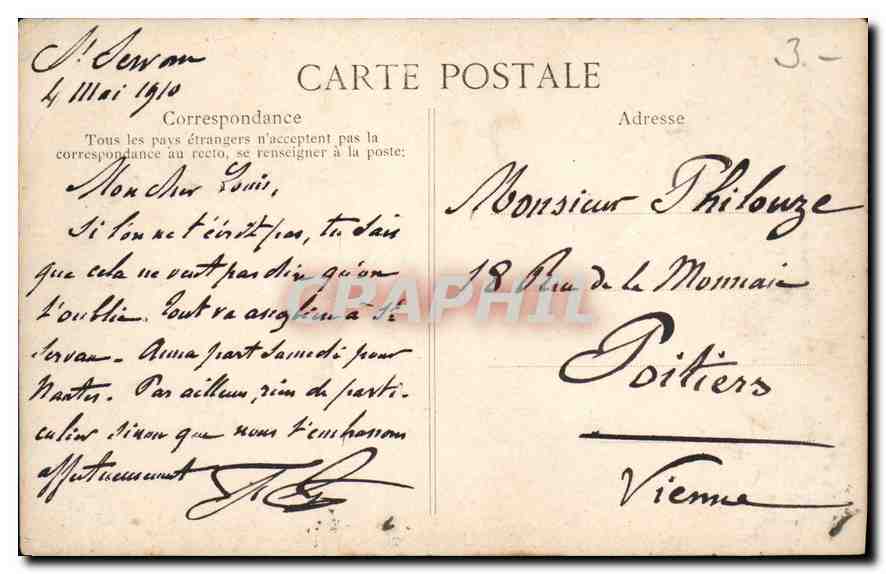 St Servan
4 Mai 1910
3.-
CARTE POSTALE
Correspondance
Tous les pays étrangers n'acceptent pas la
correspondance au recto, se renseigner à la poste:
Mon cher Louis,
Si l'on ne t'écrit pas, tu sais
que cela ne veut pas dire qu'on
t'oublie. Tout va bien à St
Servan. Anna part Samedi pour
Nantes. Par ailleurs, rien de parti-
culier sinon que nous t'embrassons
affectueusement
Adresse
Monsieur Philouze
18 Rue de la Monnaie
Poitiers
Vienne
CPAPHIL